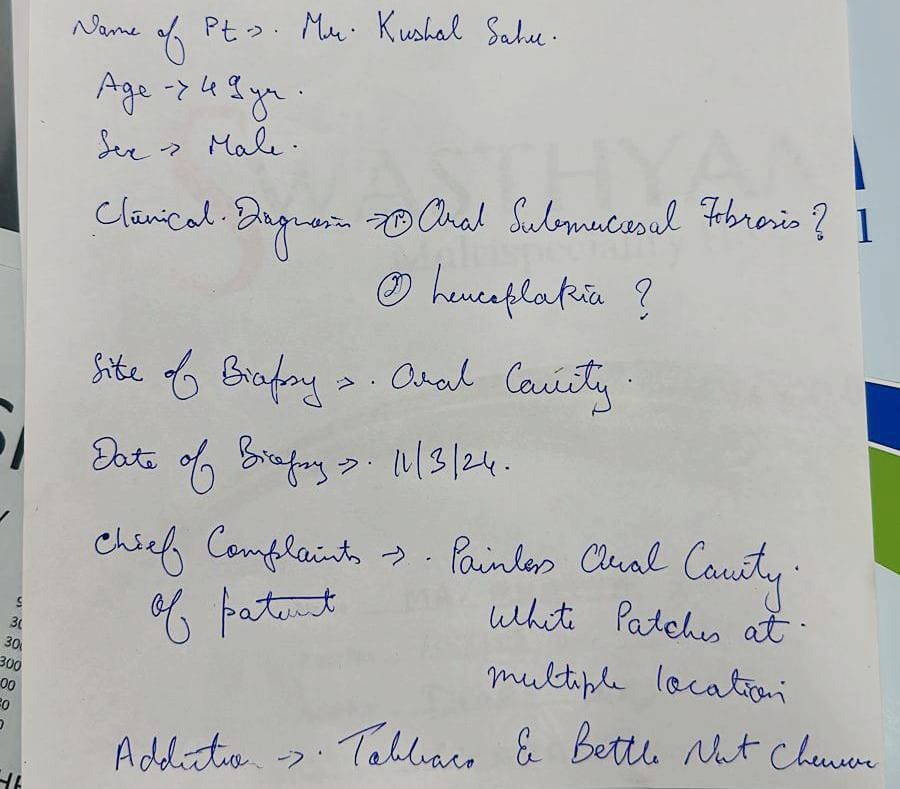 Name of Pt →. Mr. Kushal Sahu.
Age → 49 yr.
Sex → Male.
Clinical. Diagnosis → ① Oral Submucosal Fibrosis?
② Leucoplakia ?
Site of Biopsy →. Oral Cavity.
Date of Biopsy →. 11/3/24.
Chief Complaints →. Painless Oral Cavity.
of patient White Patches at.
multiple location
Addiction →. Tobbaco & Bettle Nut Chewer
SWASTHYAM
Multispeciality
1
30
300
300
00